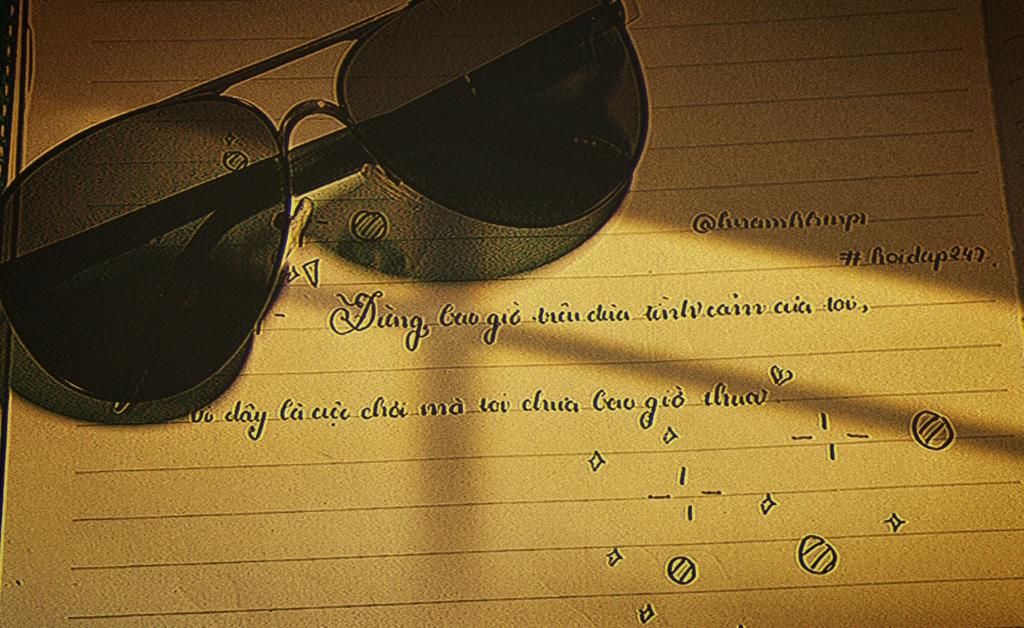 #hoidap247.
Đừng bao giờ trêu đùa tình cảm của tôi,
Vì đây là cuộc chơi mà tôi chưa bao giờ thua